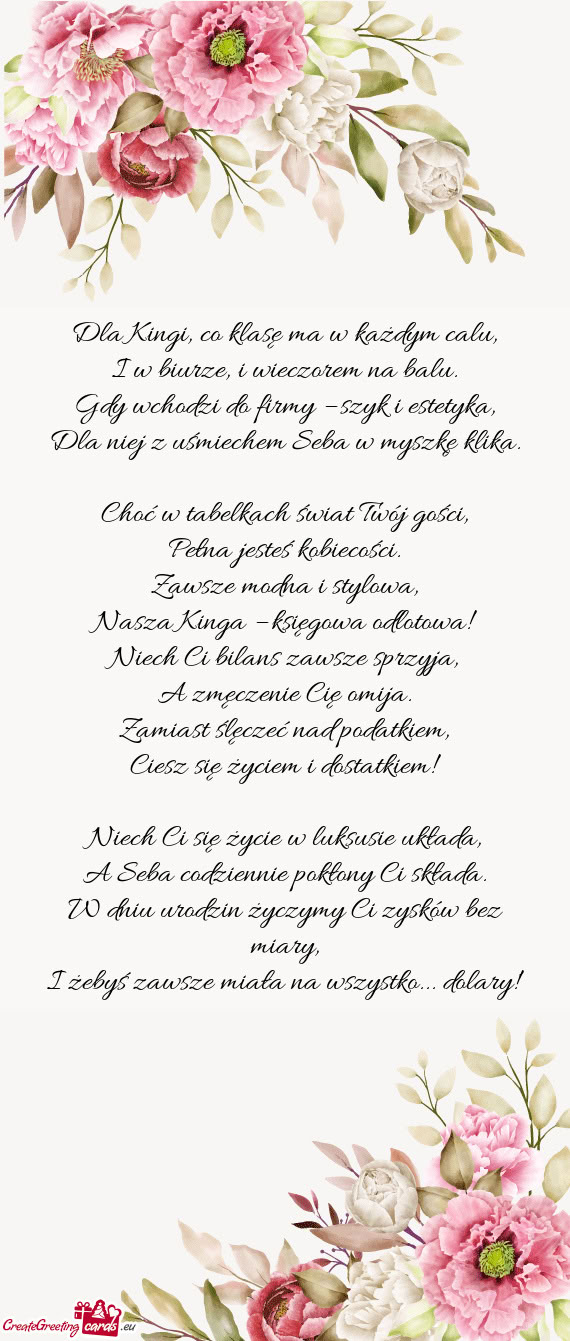 Dla Kingi, co klasę ma w każdym calu,
I w biurze, i wieczorem na balu.
Gdy wchodzi do firmy – szyk i estetyka,
Dla niej z uśmiechem Seba w myszkę klika.
Choć w tabelkach świat Twój gości,
Pełna jesteś kobiecości.
Zawsze modna i stylowa,
Nasza Kinga – księgowa odlotowa!
Niech Ci bilans zawsze sprzyja,
A zmęczenie Cię omija.
Zamiast ślęczeć nad podatkiem,
Ciesz się życiem i dostatkiem!
Niech Ci się życie w luksusie układa,
A Seba codziennie pokłony Ci składa.
W dniu urodzin życzymy Ci zysków bez
miary,
I żebyś zawsze miała na wszystko... dolary!
CreateGreeting cards .eu